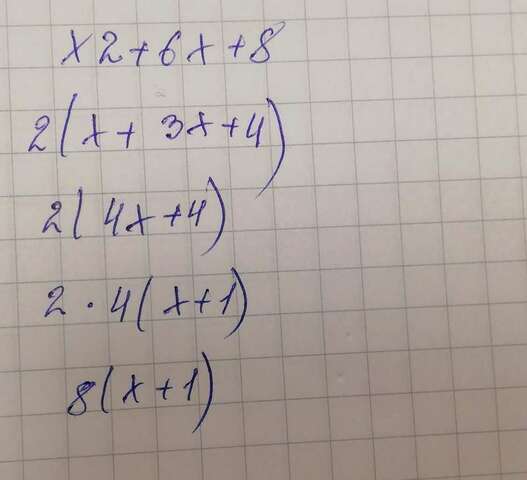 x2+6x+8
2(x+ 3x+4)
2(4x+4)
2·4(x+1)
8(x+1)